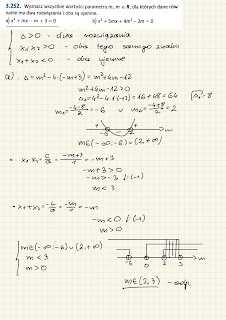 3.252. Wyznacz wszystkie wartości parametru m, m ∈ R, dla których dane rów-
nanie ma dwa rozwiązania i oba są ujemne.
a) x² + mx − m + 3 = 0 b) x² + 5mx + 4m² − 3m = 0
Δ>0 - dwa rozwiązania
x₁·x₂>0 - oba tego samego znaku
x₁+x₂<0 - oba ujemne
a) Δ = m²-4·(-m+3) = m²+4m-12
m²+4m-12>0
Δₘ=4²-4·1·(-12)=16+48=64 √Δₘ=8
m₁=(-4-8)/2=-6 ∨ m₂=(-4+8)/2=2
-6 2 m
m∈(-∞;-6)∪(2,+∞)
• x₁·x₂ = c/a = (-m+3)/1 = -m+3
-m+3>0
-m>-3 /·(-1)
m<3
• x₁+x₂ = -b/a = -m/1 = -m
-m<0 /·(-1)
m>0
m∈(-∞;-6)∪(2,+∞)
m<3
m>0
-6 0 2 3 m
m∈(2,3) - odp.